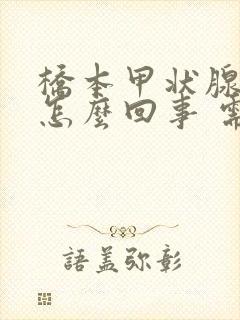 橋本甲状腺
怎麼回事 需
語蓋弥彰